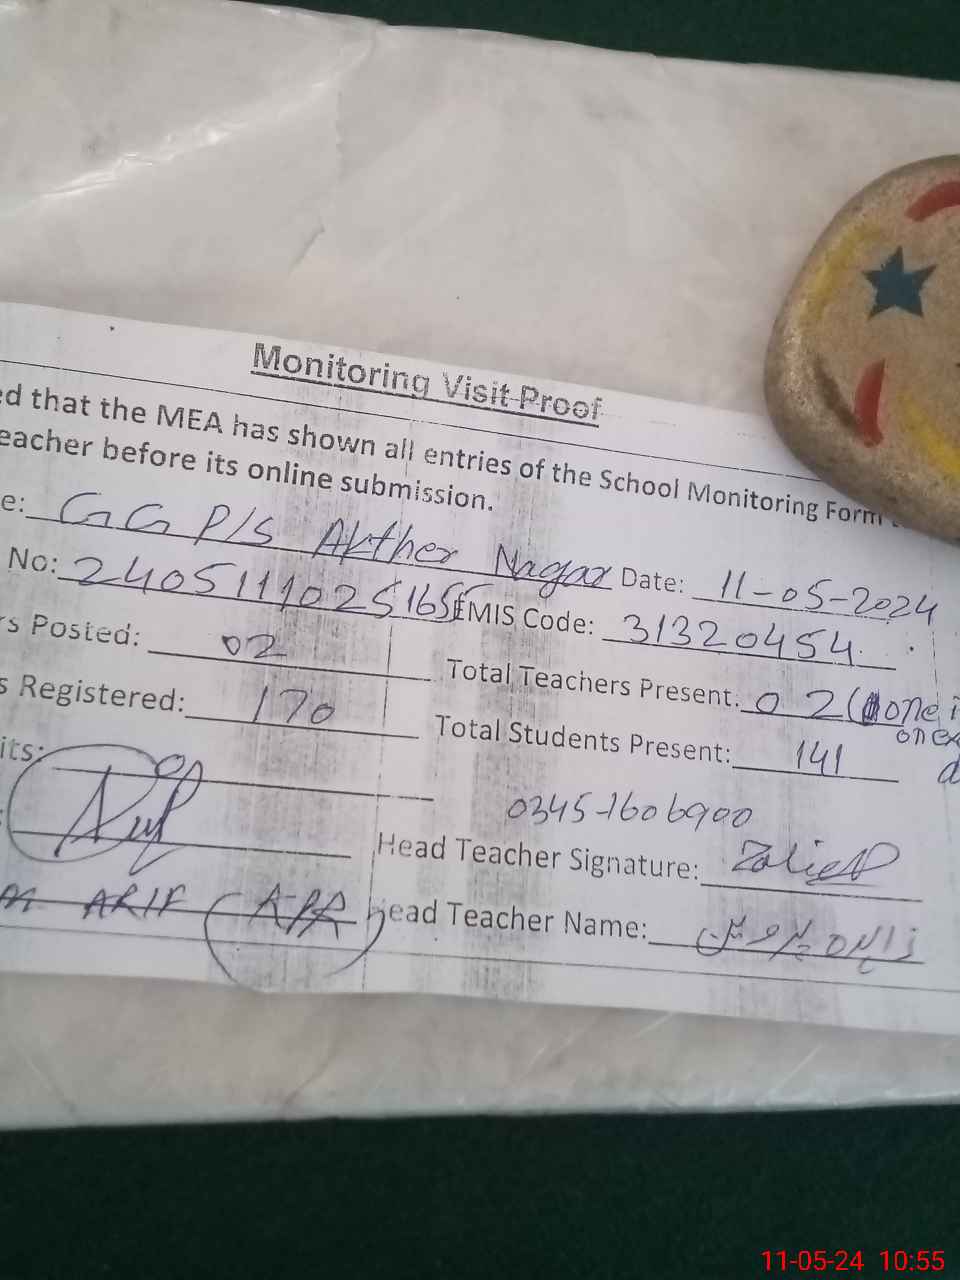 Monitoring Visit Proof
ed that the MEA has shown all entries of the School Monitoring Form
eacher before its online submission.
e: GG P/S Akther Nagar Date: 11-05-2024
No: 24051110251655 EMIS Code: 31320454
rs Posted: 02 Total Teachers Present: 02 (one i
one
s Registered: 170 Total Students Present: 141
its:
0345-1606900
Head Teacher Signature:
ARIF Head Teacher Name: زاہدہ پروین
11-05-24 10:55